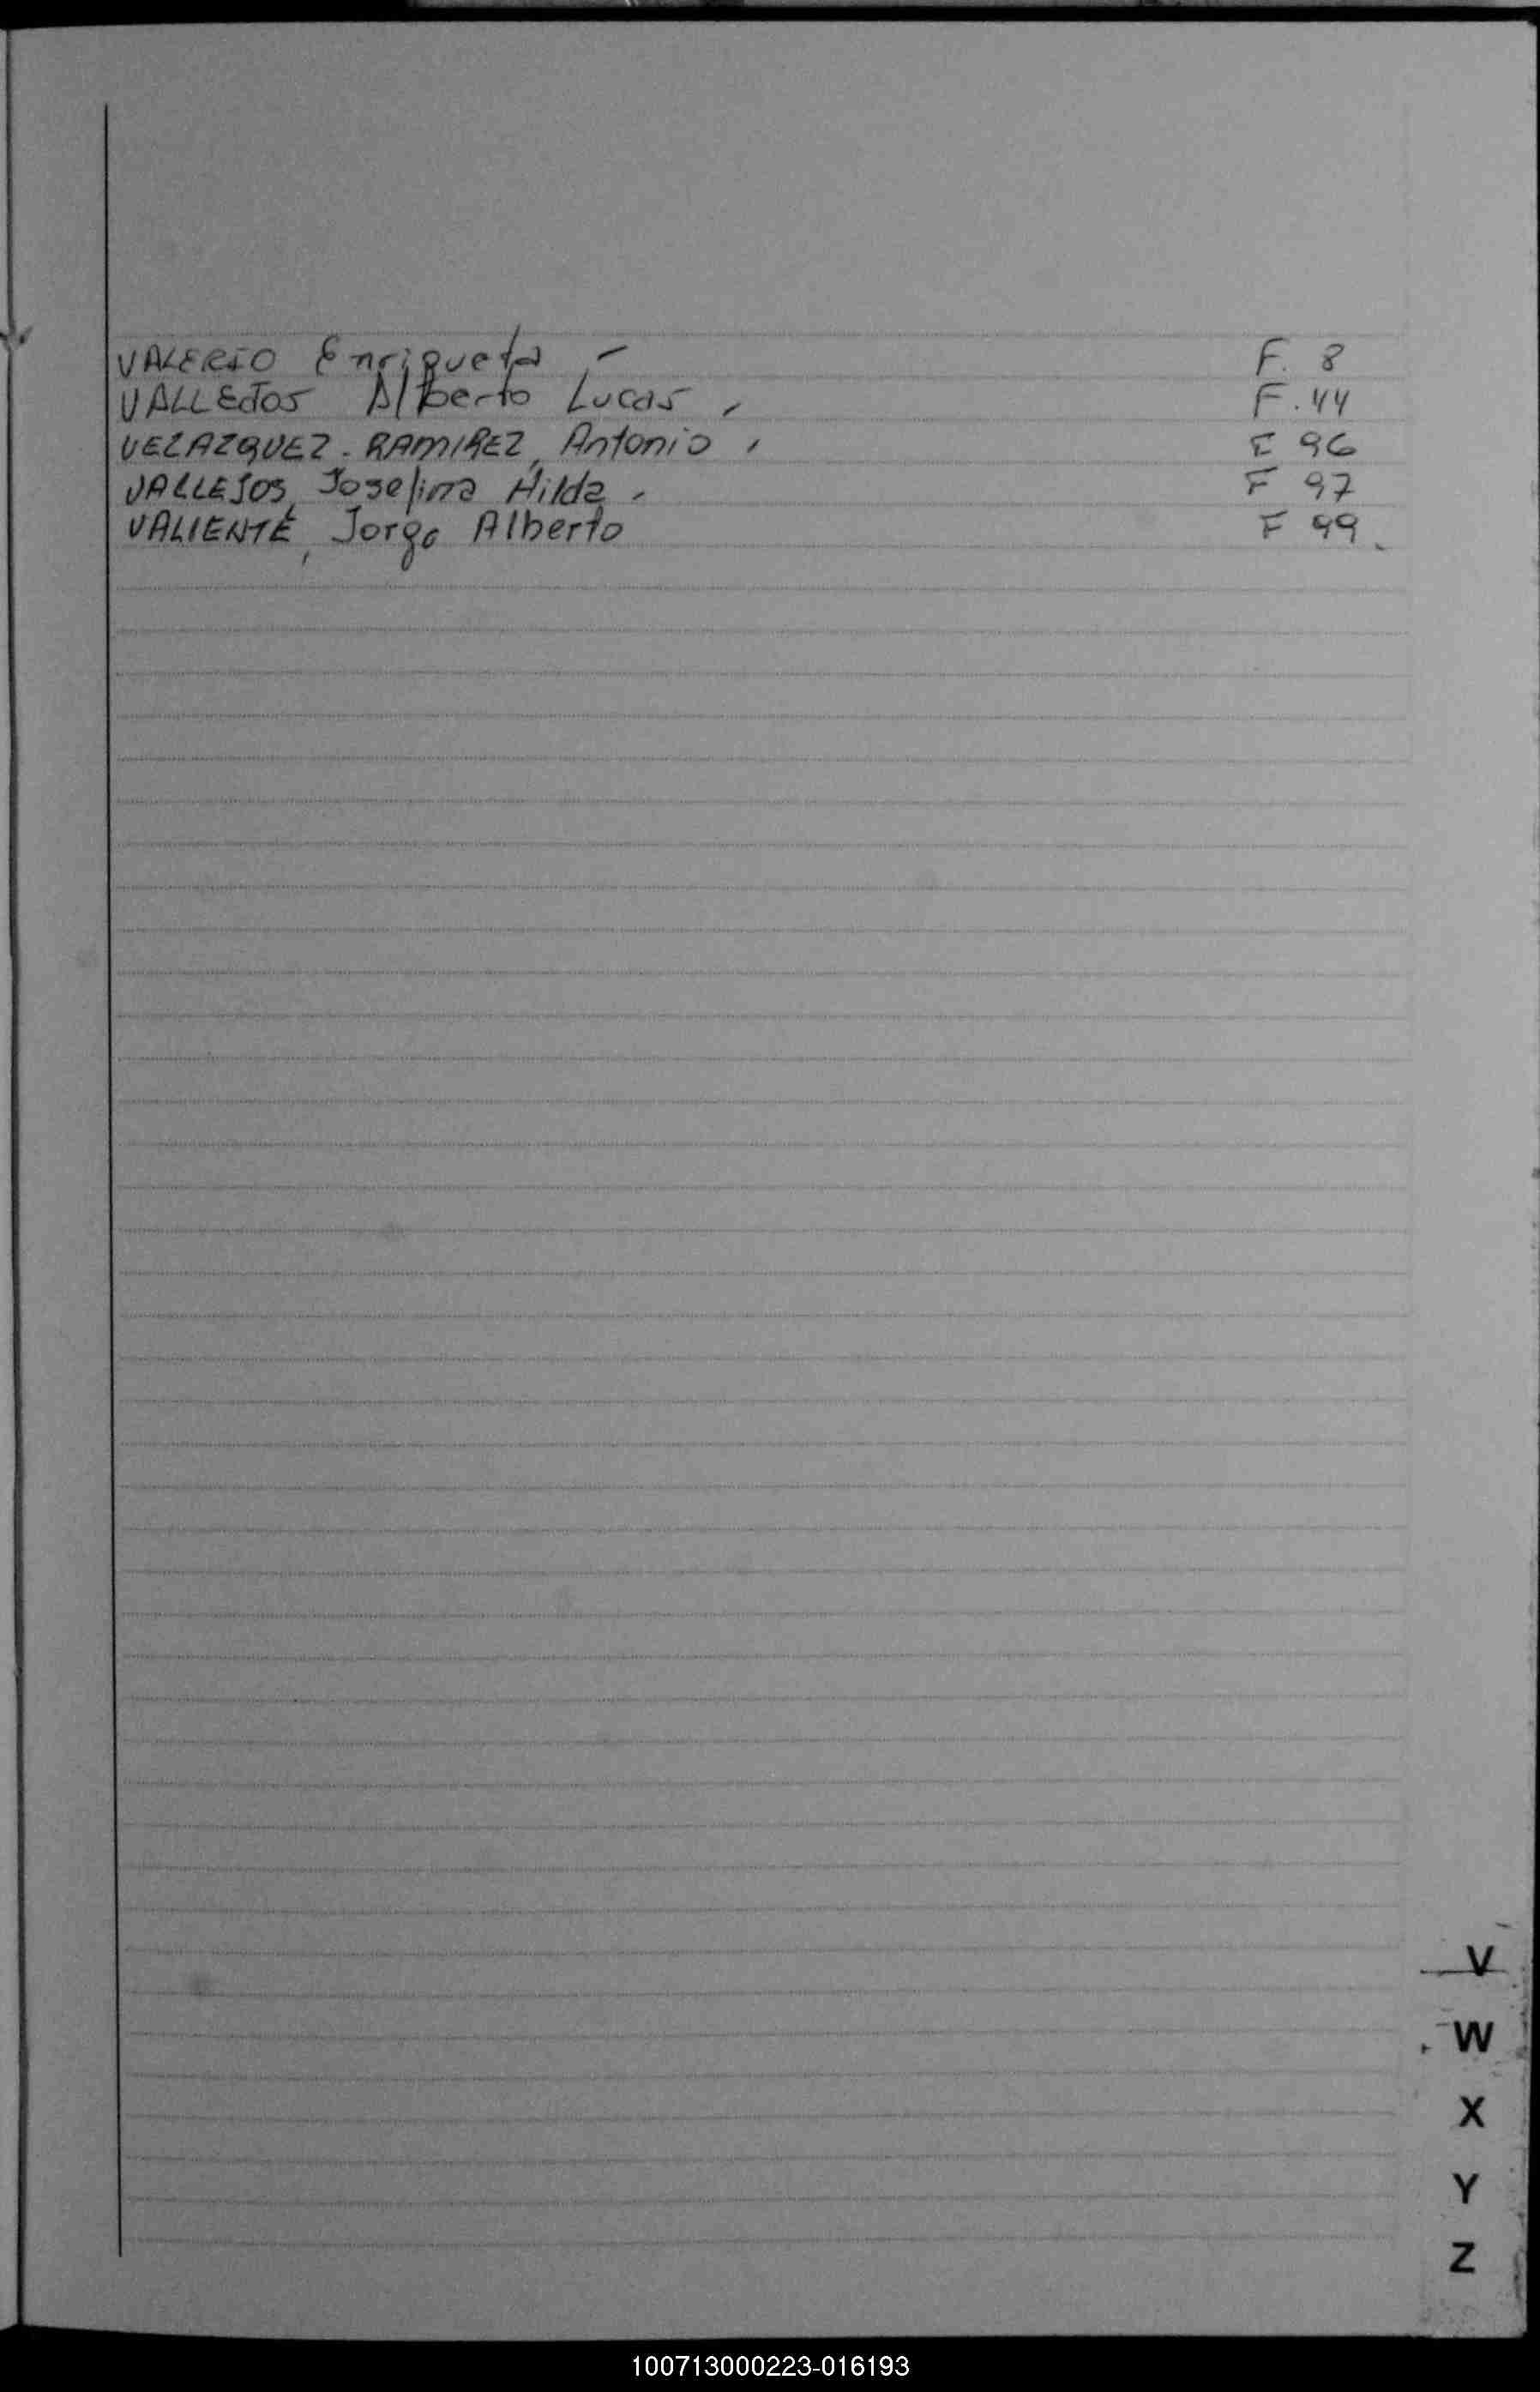 VALERIO Enriqueta - F. 8
VALLEJOS Alberto Lucas, F. 44
VELAZQUEZ - RAMIREZ, Antonio, F 96
VALLEJOS, Josefina Hilda, F 97
VALIENTE, Jorge Alberto F 99.
V
W
X
Y
Z
100713000223-016193